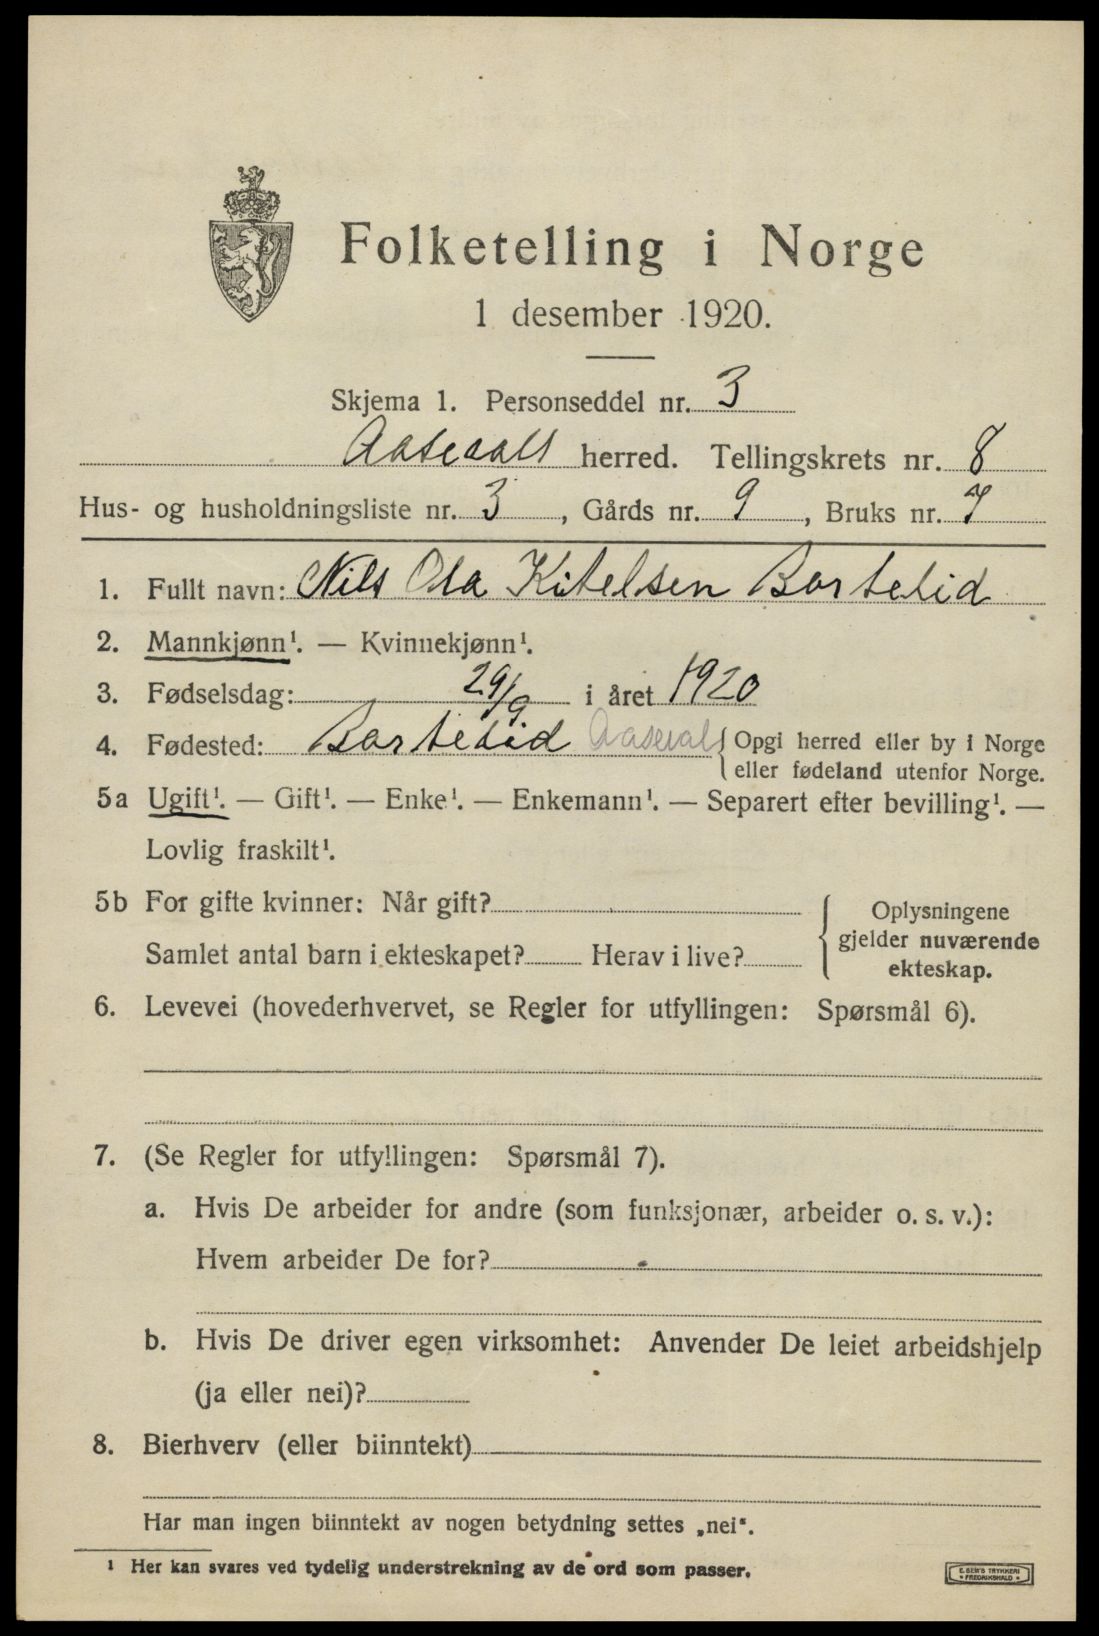 Folketelling i Norge
1 desember 1920.
Skjema 1. Personseddel nr. 3
Aaseralt herred. Tellingskrets nr. 8
Hus- og husholdningsliste nr. 3, Gårds nr. 9, Bruks nr. 7
1. Fullt navn: Nils Ola Kitelsen Bortelid
2. Mannkjønn¹. — Kvinnekjønn¹.
3. Fødselsdag: 29/9 i året 1920
4. Fødested: Bortelid Aaseral { Opgi herred eller by i Norge
eller fødeland utenfor Norge.
5a Ugift¹. — Gift¹. — Enke¹. — Enkemann¹. — Separert efter bevilling¹. —
Lovlig fraskilt¹.
5b For gifte kvinner: Når gift?
Samlet antal barn i ekteskapet? Herav i live?
{ Oplysningene
gjelder nuværende
ekteskap.
6. Levevei (hovederhvervet, se Regler for utfyllingen: Spørsmål 6).
7. (Se Regler for utfyllingen: Spørsmål 7).
a. Hvis De arbeider for andre (som funksjonær, arbeider o. s. v.):
Hvem arbeider De for?
b. Hvis De driver egen virksomhet: Anvender De leiet arbeidshjelp
(ja eller nei)?
8. Bierhverv (eller biinntekt)
Har man ingen biinntekt av nogen betydning settes „nei“.
¹ Her kan svares ved tydelig understrekning av de ord som passer.
E. SEM'S TRYKKERI
* FREDRIKSHALD *